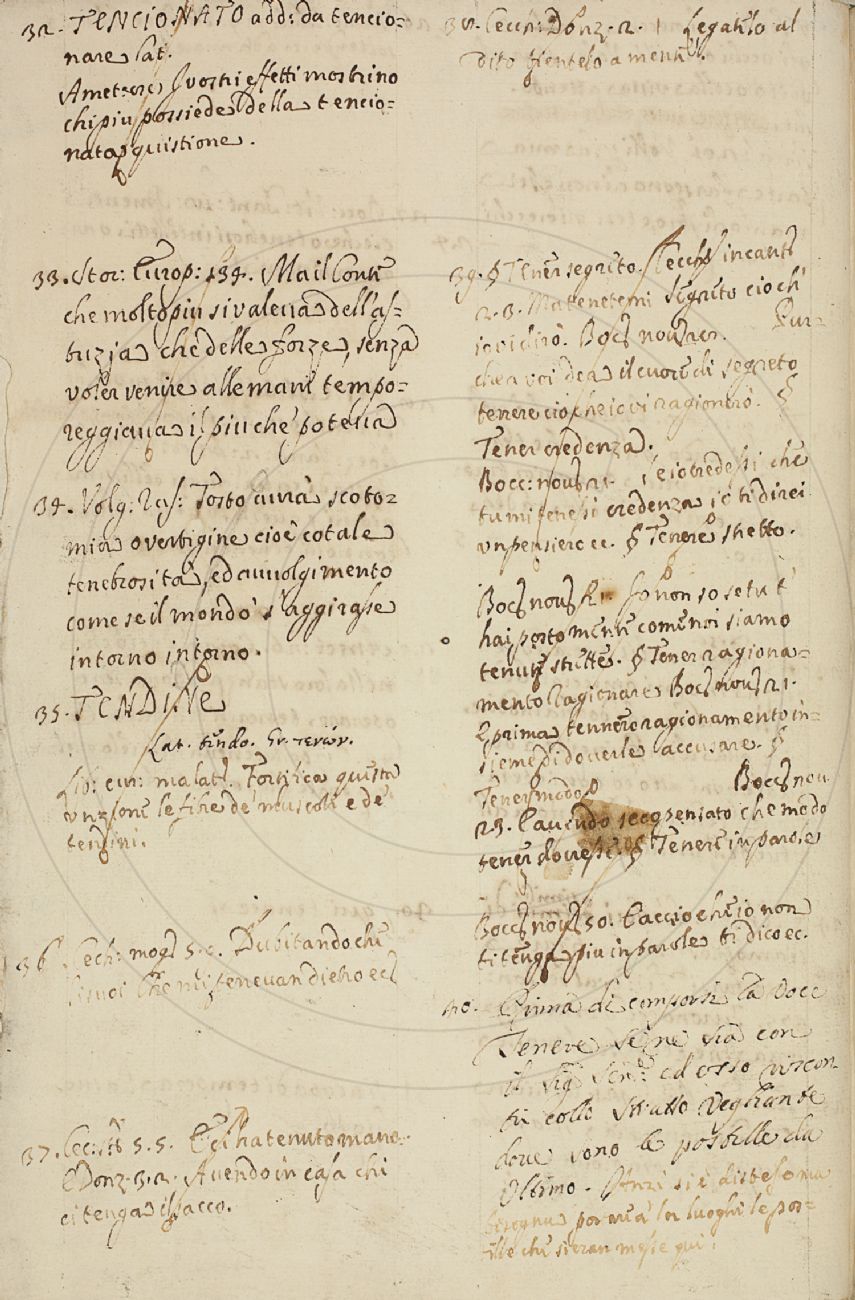 32. TENCIONATO add: da tencio=
nare lat.
Amet: 101 I vostri effetti mostrino
chi piu possiede della tencio=
nata quistione.
33. Stor: Europ: 134. Ma il Conte
che molto piu si valeva dell'as-
tuzia che delle forze, senza
voler venire alle mani tempo=
reggiava il piu che poteva
34. Volg: Ras: Tosto avrà scoto=
mia o vertigine cioè cotale
tenebrosità, ed avvolgimento
come se il mondo s'aggirasse
intorno intorno.
35. TENDINE
Lat. tendo. Gr. τενών.
Lib: cur: malat. Fortifica questa
unzione le fibre de' muscoli e de'
tendini.
36 Cech: mogl 5. Dubitando che
i suoi che mi tenevan dietro ec
37. Cec: 5. 5. E gli ha tenuto mano.
E Donz. 3. 2. Avendo in casa chi
ci tenga il sacco.
38. Cecch: Donz. 2. Legatelo al
dito tientelo a mente.
39. § Tener segreto. Cecch incant
2. 3. Ma tenetemi segreto cio ch'
io vi dirò. Bocc nov Pur-
che a voi dea il cuore di segreto
tenere ciò che io vi ragionerò. §
Tener credenza.
Bocc: nov 21. Se io credessi che
tu mi tenessi credenza io ti direi
un pensiero ec. § Tenere stretto.
Bocc nov 21. Io non so se tu t'
hai posto mente come noi siamo
tenute strette. § Tener ragiona-
mento Ragionare Bocc nov 21.
E prima tennero ragionamento in-
sieme di doverle accusare. §
Tener modo Bocc nov
23. E avendo seco pensato che modo
tener dovesse. § Tenere in parole
Bocc nov 50. E acciò che io non
ti tenga piu in parole ti dico ec.
40. Prima di comporsi la Voce
Tenere se ne stia con
il Sig. ed esso riscon
tri collo Stratto Vegliante
dove sono le postille da
Ultimo. Anzi si è disteso ma
bisogna portare a lor luoghi le pos=
tille che sieran messe qui.